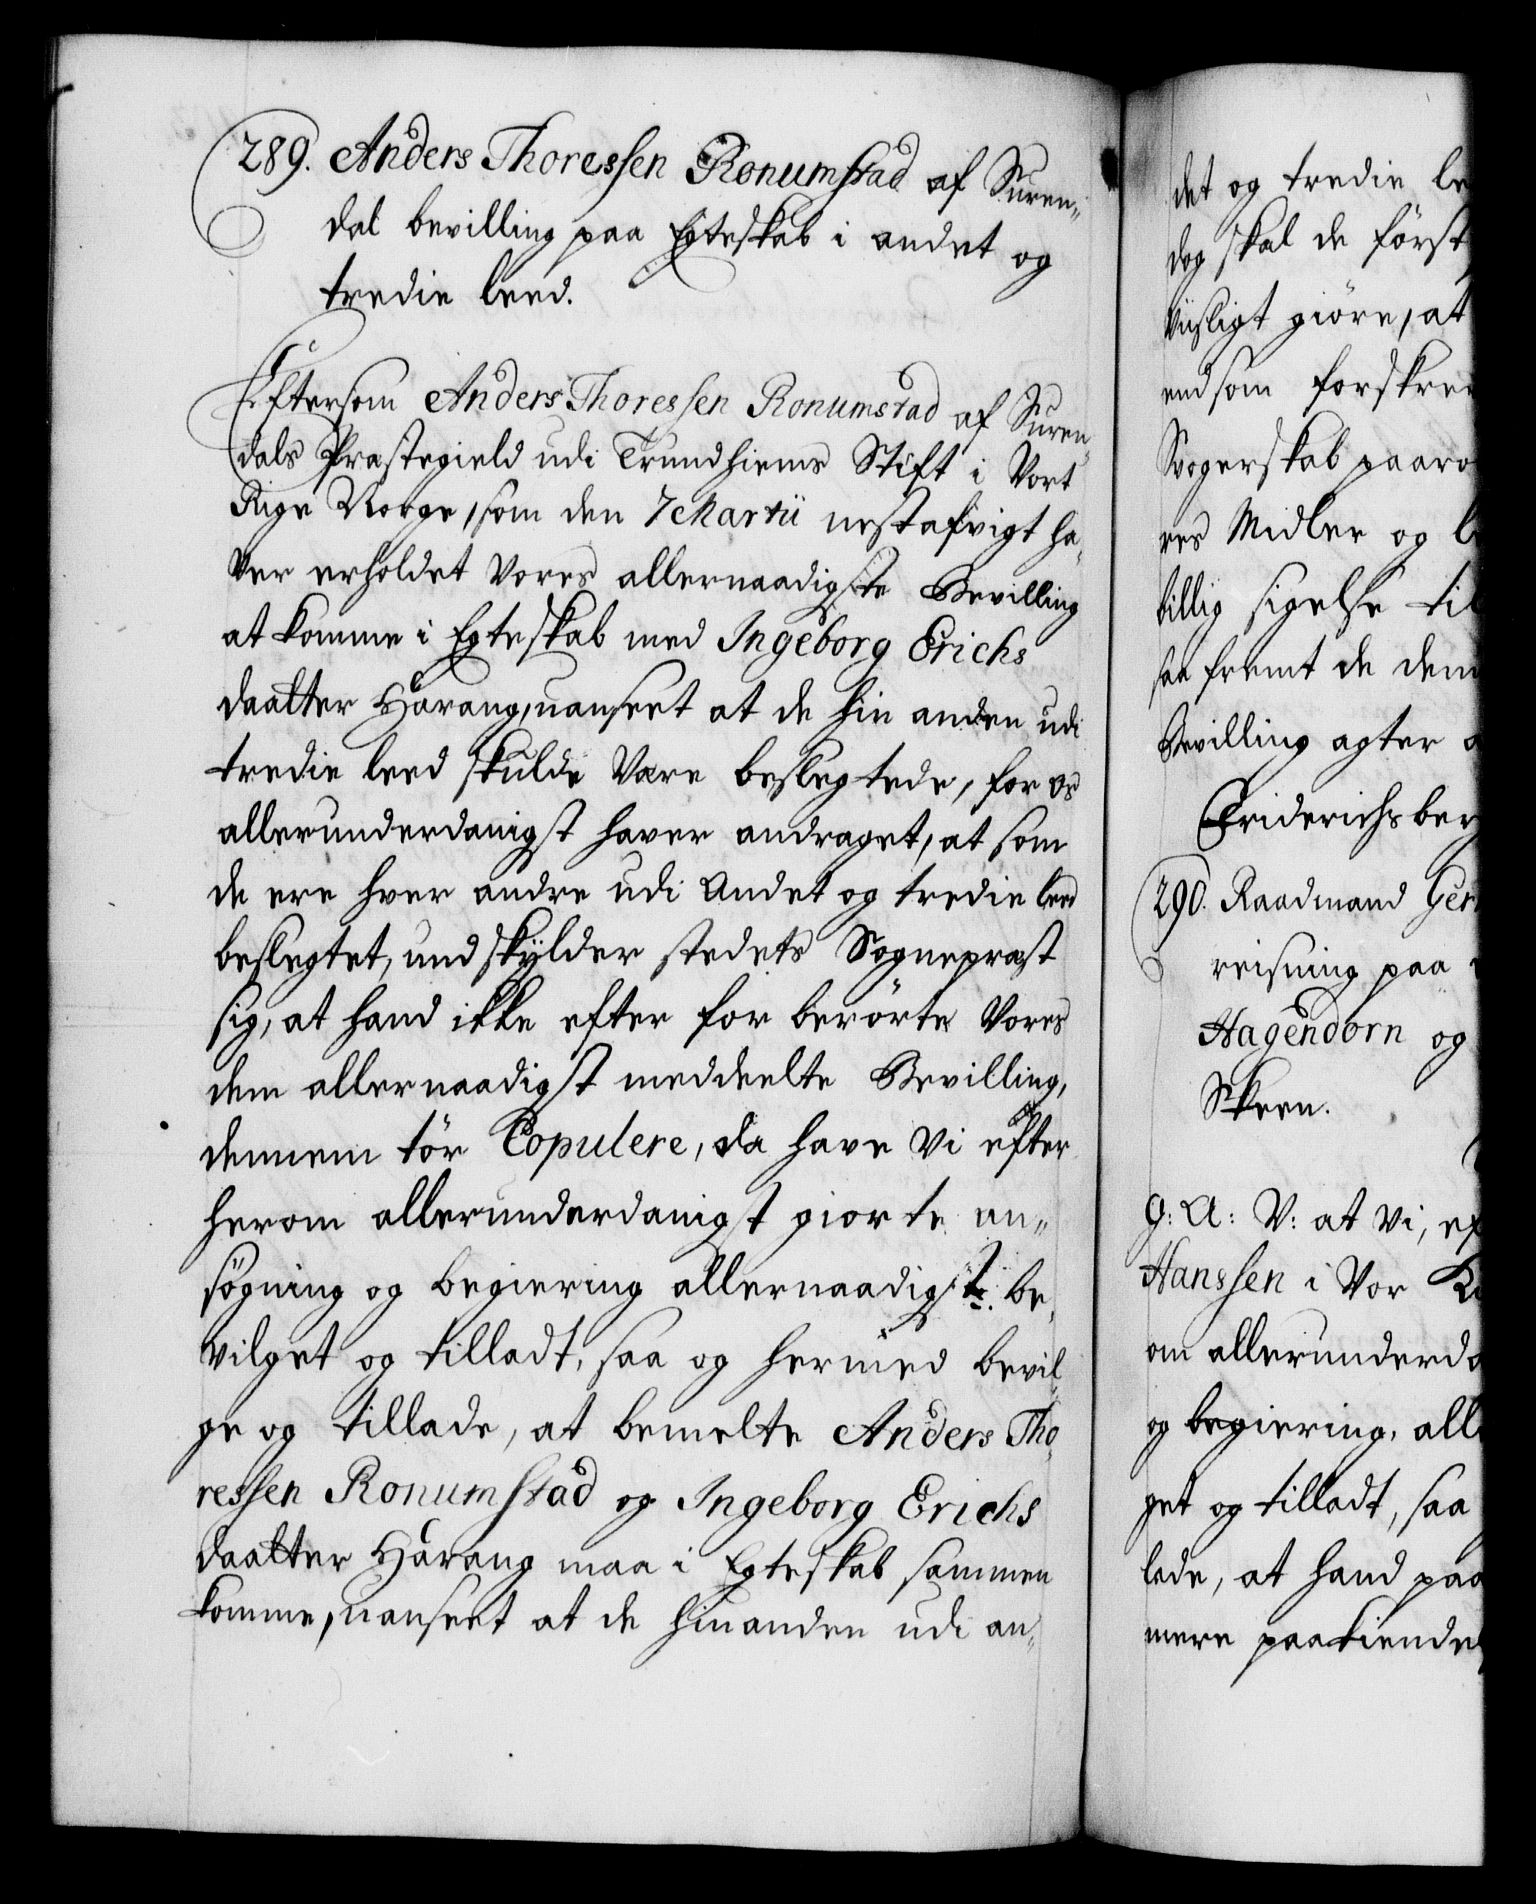 289. Anders Thoressen Ronumstad af Suren-
dal bevilling paa Egteskab i andet og
tredie leed.
Eftersom Anders Thoressen Ronumstad af Suren-
dals Præstegield udi Trundhiems Stift i Vort
Rige Norge, som den 7 Martii nestafvigt ha-
ver erholdet Vores allernaadigste Bevilling
at komme i Egteskab med Ingeborg Erichs
daatter Harang, uanseet at de hin anden udi
tredie leed skulde Være beslegtede, for os
allerunderdanigst haver andraget, at som
de ere hver andre udi Andet og tredie leed
beslegtet, undskylder stedets Sognepræst
sig, at hand ikke efter for berørte Vores
dem allernaadigst meddeelte Bevilling,
dennem tør Copulere, da have Vi efter
herom allerunderdanigst giorte an-
søgning og begiering allernaadigst be-
vilget og tilladt, saa og hermed bevil-
ge og tillade, at bemelte Anders Tho-
ressen Ronumstad og Ingeborg Erichs
daatter Harang maa i Egteskab sammen
komme, uanseet at de hinanden udi an-
det og tredie le
dog skal de først
viisligt giøre, at
end som forskre
Svogerskab paaro
res Midler og l
billig sigelse til
saa fremt de dem
Bevilling agter
Friderichsber
290. Raadmand Ger
reisning paa
Hagendorn og
Skeen.
G: A: V: at Vi, ef
Hanssen i Vor
om allerunderda
og begiering, all
get og tilladt, saa
lade, at hand paa
mere paakiende